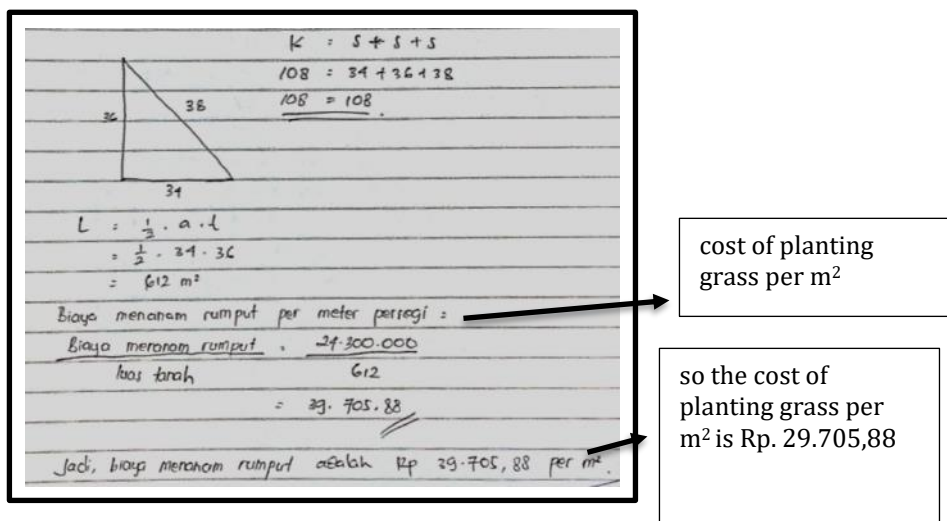 K = s + s + s
108 = 34 + 36 + 38
108 = 108
36
38
34
L = ½ . a . t
= ½ . 34 . 36
= 612 m²
Biaya menanam rumput per meter persegi =
Biaya menanam rumput = 24.300.000
luas tanah 612
= 39.705.88
Jadi, biaya menanam rumput adalah Rp 39.705,88 per m².
cost of planting
grass per m²
so the cost of
planting grass per
m² is Rp. 29.705,88